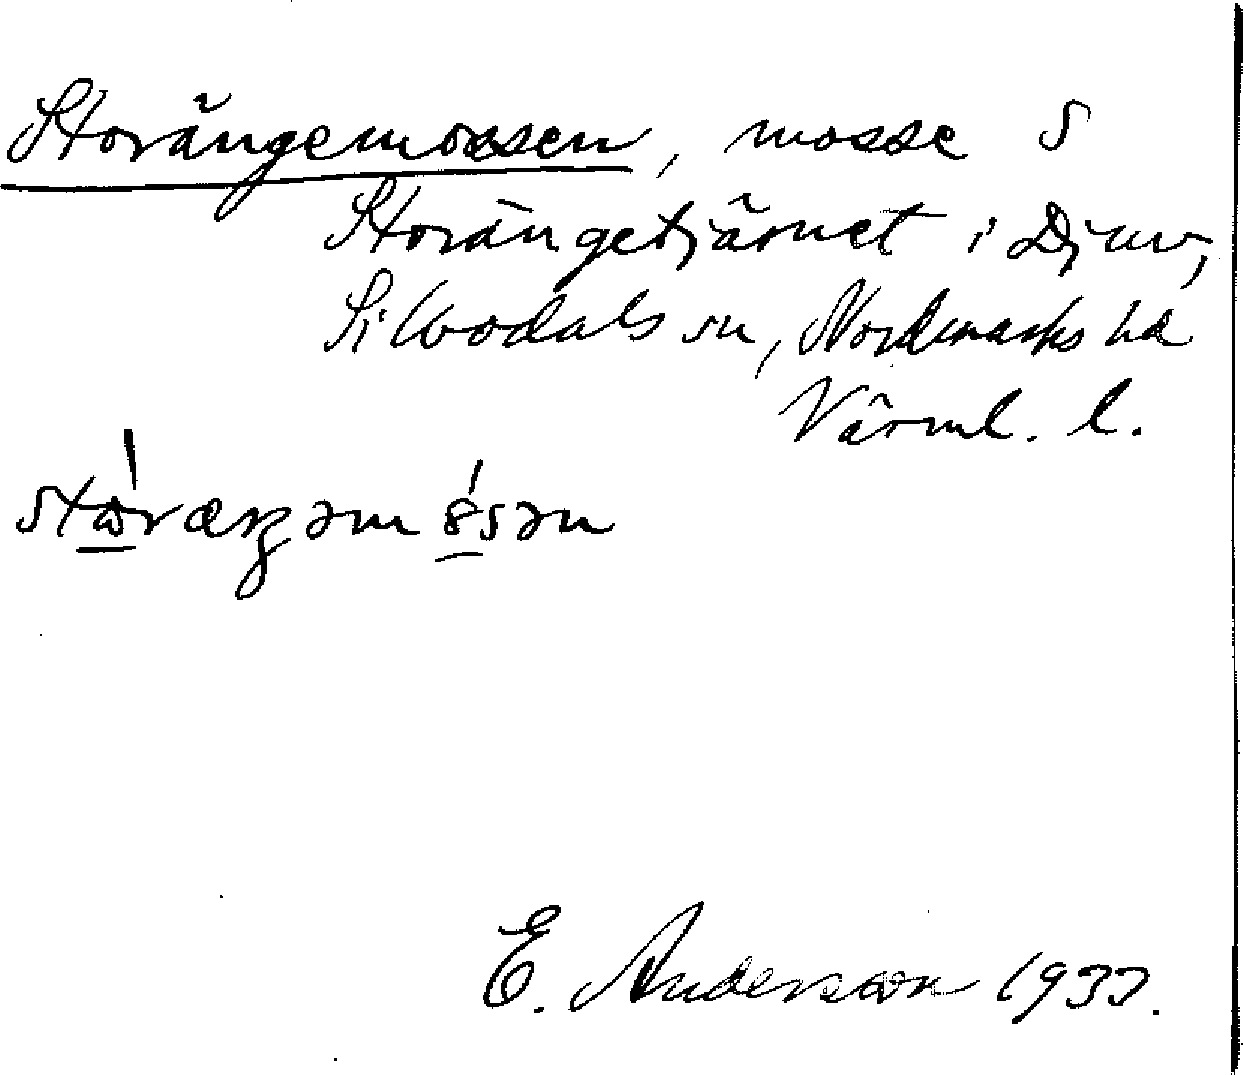 Storängemossen, mosse S
Storängetjärnet i Djuv,
Silbodals sn, Nordmarks hd
Värml. l.
E. Anderson 1937.